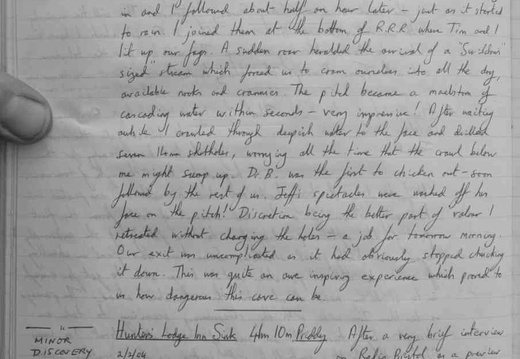 in and I followed about half an hour later - just as it started
to rain. I joined them at the bottom of R.R.R. where Tim and I
lit up our fags. A sudden roar heralded the arrival of a "Swildons"
sized stream which forced us to cram ourselves into all the dry,
available nooks and crannies. The pitch became a maelstrom of
cascading water within seconds - very impressive! After waiting
awhile I crawled through deepish water to the face and drilled
seven 16mm shotholes, worrying all the time that the crawl below
me might sump up. Dr. B. was the first to chicken out - soon
followed by the rest of us. Jeff's spectacles were washed off his
face on the pitch! Discretion being the better part of valour I
retreated without charging the holes - a job for tomorrow morning.
Our exit was uncomplicated as it had obviously stopped chucking
it down. This was quite an awe inspiring experience which proved to
us how dangerous this cave can be.
MINOR DISCOVERY
Hunters' Lodge Inn Sink 4hrs 10m Priddy After a very brief interview
2/2/04 on Radio Bristol as a preview